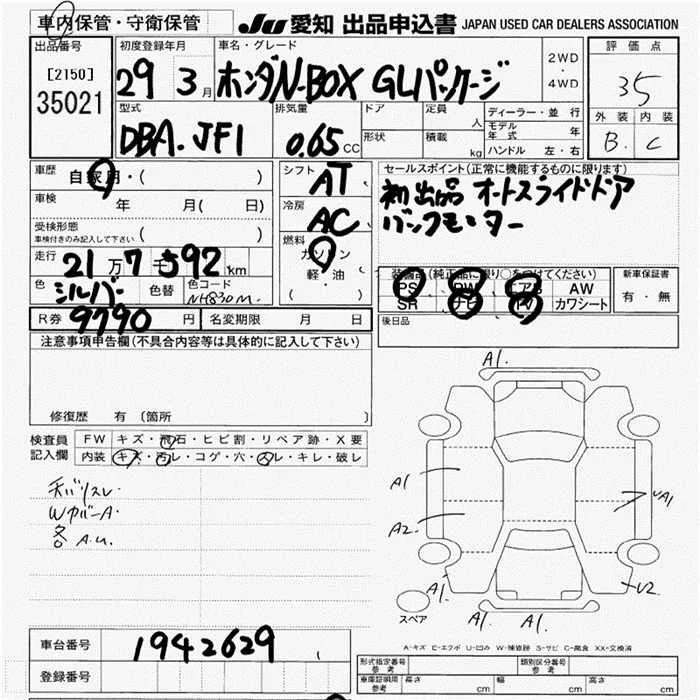 車内保管・守衛保管 JU 愛知 出品申込書 JAPAN USED CAR DEALERS ASSOCIATION
出品番号 初度登録年月 車名・グレード 2WD ・ 4WD 評価点
[2150] 29 3月 ホンダN-BOX GLパッケージ 35
35021 型式 排気量 ドア 定員 人 ディーラー・並行 外装 内装
DBA.JF1 0.65CC 形状 積載 kg モデル年式 年 B. C
ハンドル 左・右
車歴 自家用・( ) シフト AT セールスポイント(正常に機能するものに限ります)
車検 年 月( 日) 冷房 AC 初出品 オートスライドドア
受検形態 車検付きのみ記入して下さい ( ) 燃料 ガソリン バックモニター
走行 21万7千592km 軽・油 ( ) 装備品(純正品に限り○をつけてください) 新車保証書
色 シルバー 色替 色コード NH830M PS PW エアB AW 有・無
SR ナビ TV カワシート
R券 9790円 名変期限 月 日 後日品
注意事項申告欄(不具合内容等は具体的に記入して下さい)
修復歴 有 (箇所 )
検査員記入欄 FW キズ・飛石・ヒビ割・リペア跡・X要
内装 キズ・汚レ・コゲ・穴・スレ・キレ・破レ
Wカバ-A
各 A.U.
A1.
A1 A1
A2
A1. U2
スペア A1. A1.
A-キズ E-エクボ U-凹み W-補修跡 S-サビ C-腐食 XX-交換済
車台番号 1942629
登録番号
形式指定番号 参考 類別区分番号 参考
車庫証明用 参考 長さ cm 幅 cm 高さ cm